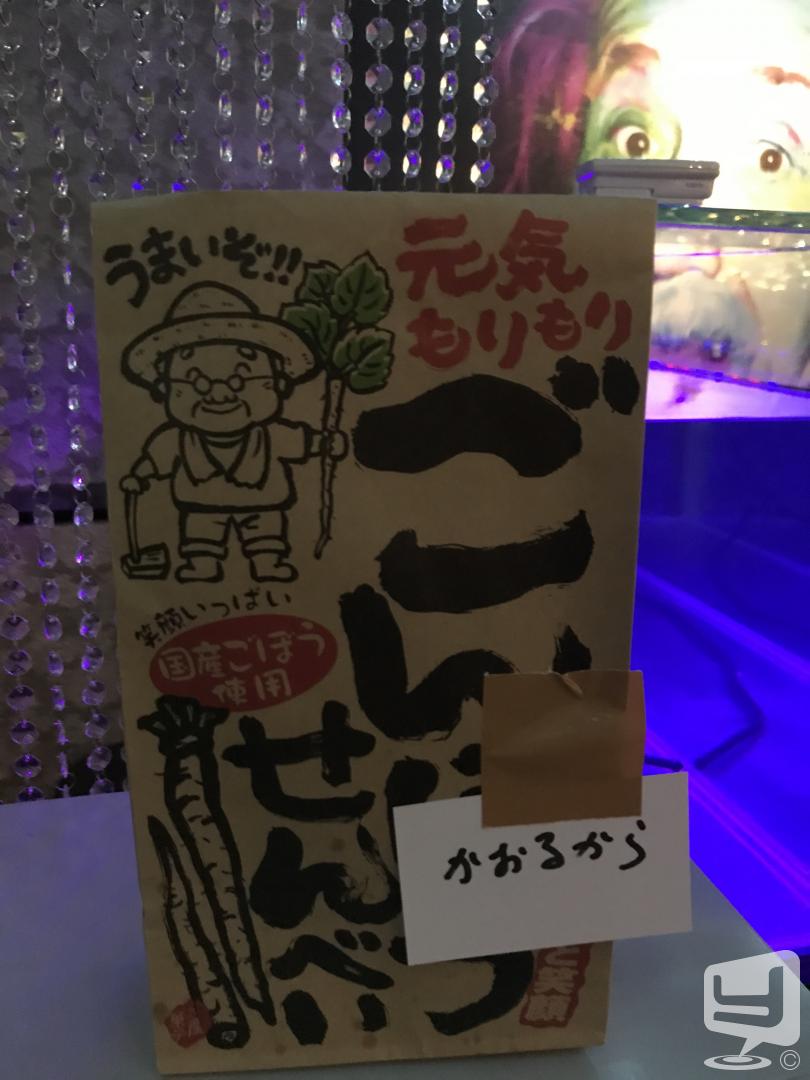 うまいぞ!!
元気
もりもり
ごんぼう
せんべい
笑顔いっぱい
国産ごぼう
使用
かおるから
と笑顔